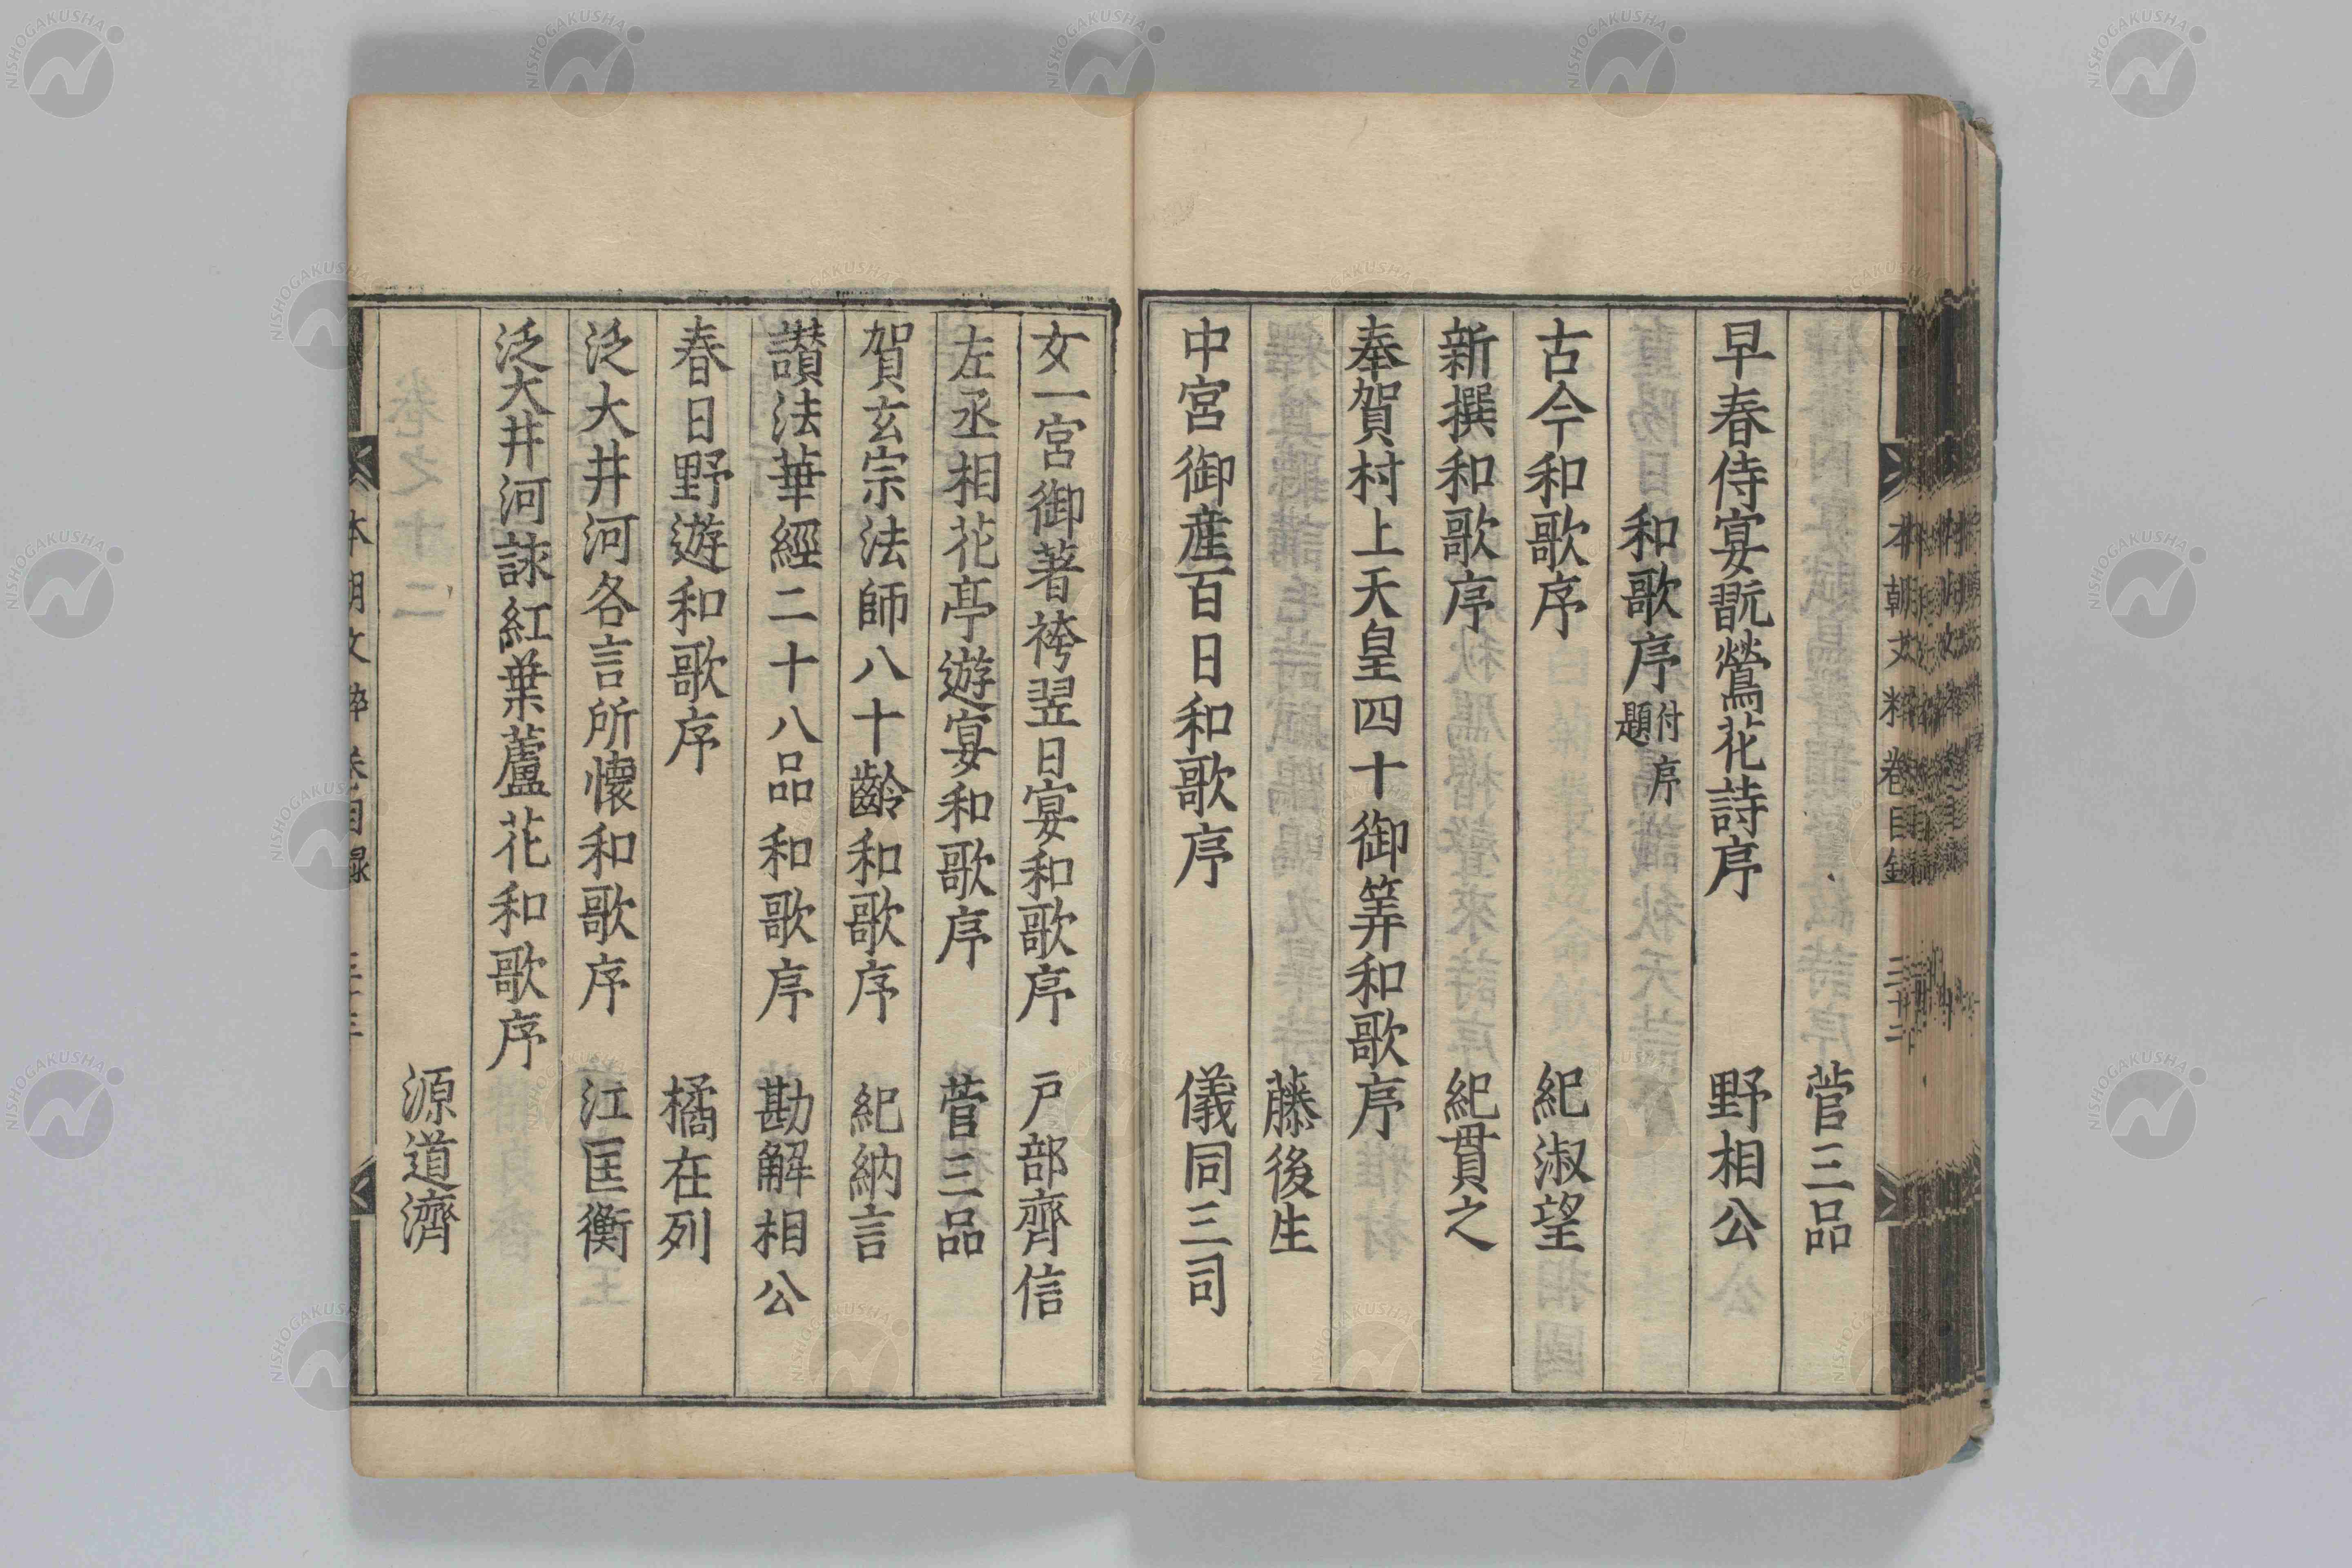 菅三品
早春侍宴翫鶯花詩序 野相公
和歌序付序題
古今和歌序 紀淑望
新撰和歌序 紀貫之
奉賀村上天皇四十御筭和歌序
藤後生
中宮御産百日和歌序 儀同三司
女一宮御著袴翌日宴和歌序 戸部齊信
左丞相花亭遊宴和歌序 菅三品
賀玄宗法師八十齡和歌序 紀納言
讃法華經二十八品和歌序 勘解相公
春日野遊和歌序 橘在列
泛大井河各言所懷和歌序 江匡衡
泛大井河詠紅葉蘆花和歌序
源道濟
本朝文粹 卷目録
NISHOGAKUSHA